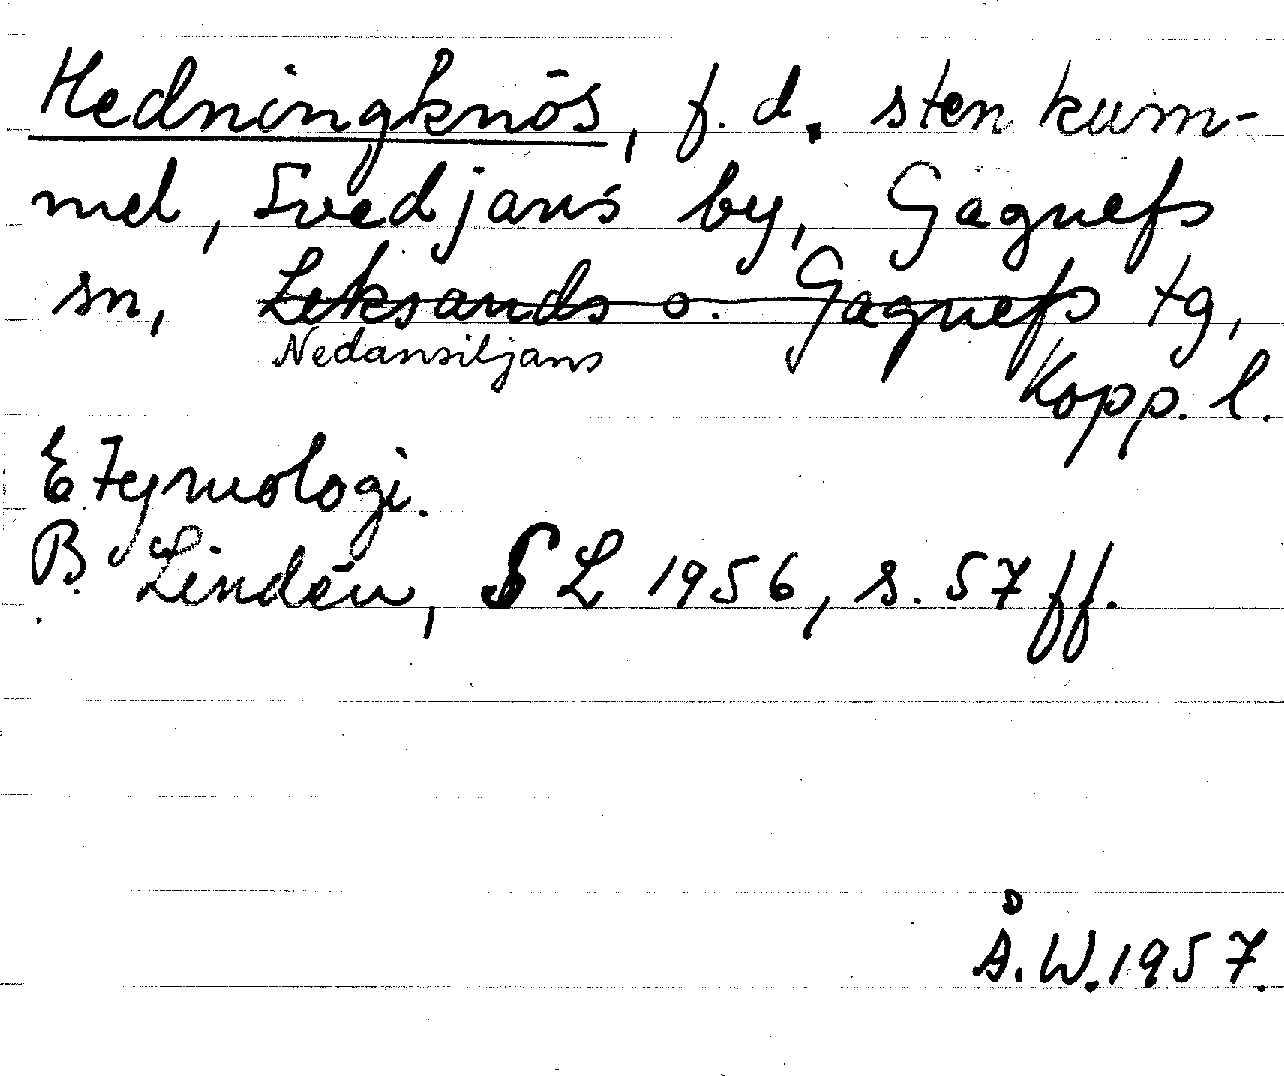 Hedningknös, f.d. stenkum-
mel, Svedjans by, Gagnefs
sn, Leksands o. Gagnefs tg,
Nedansiljans
Kopp. l.
Etymologi.
B. Lindén, SL 1956, s. 57 ff.
Å.W. 1957.